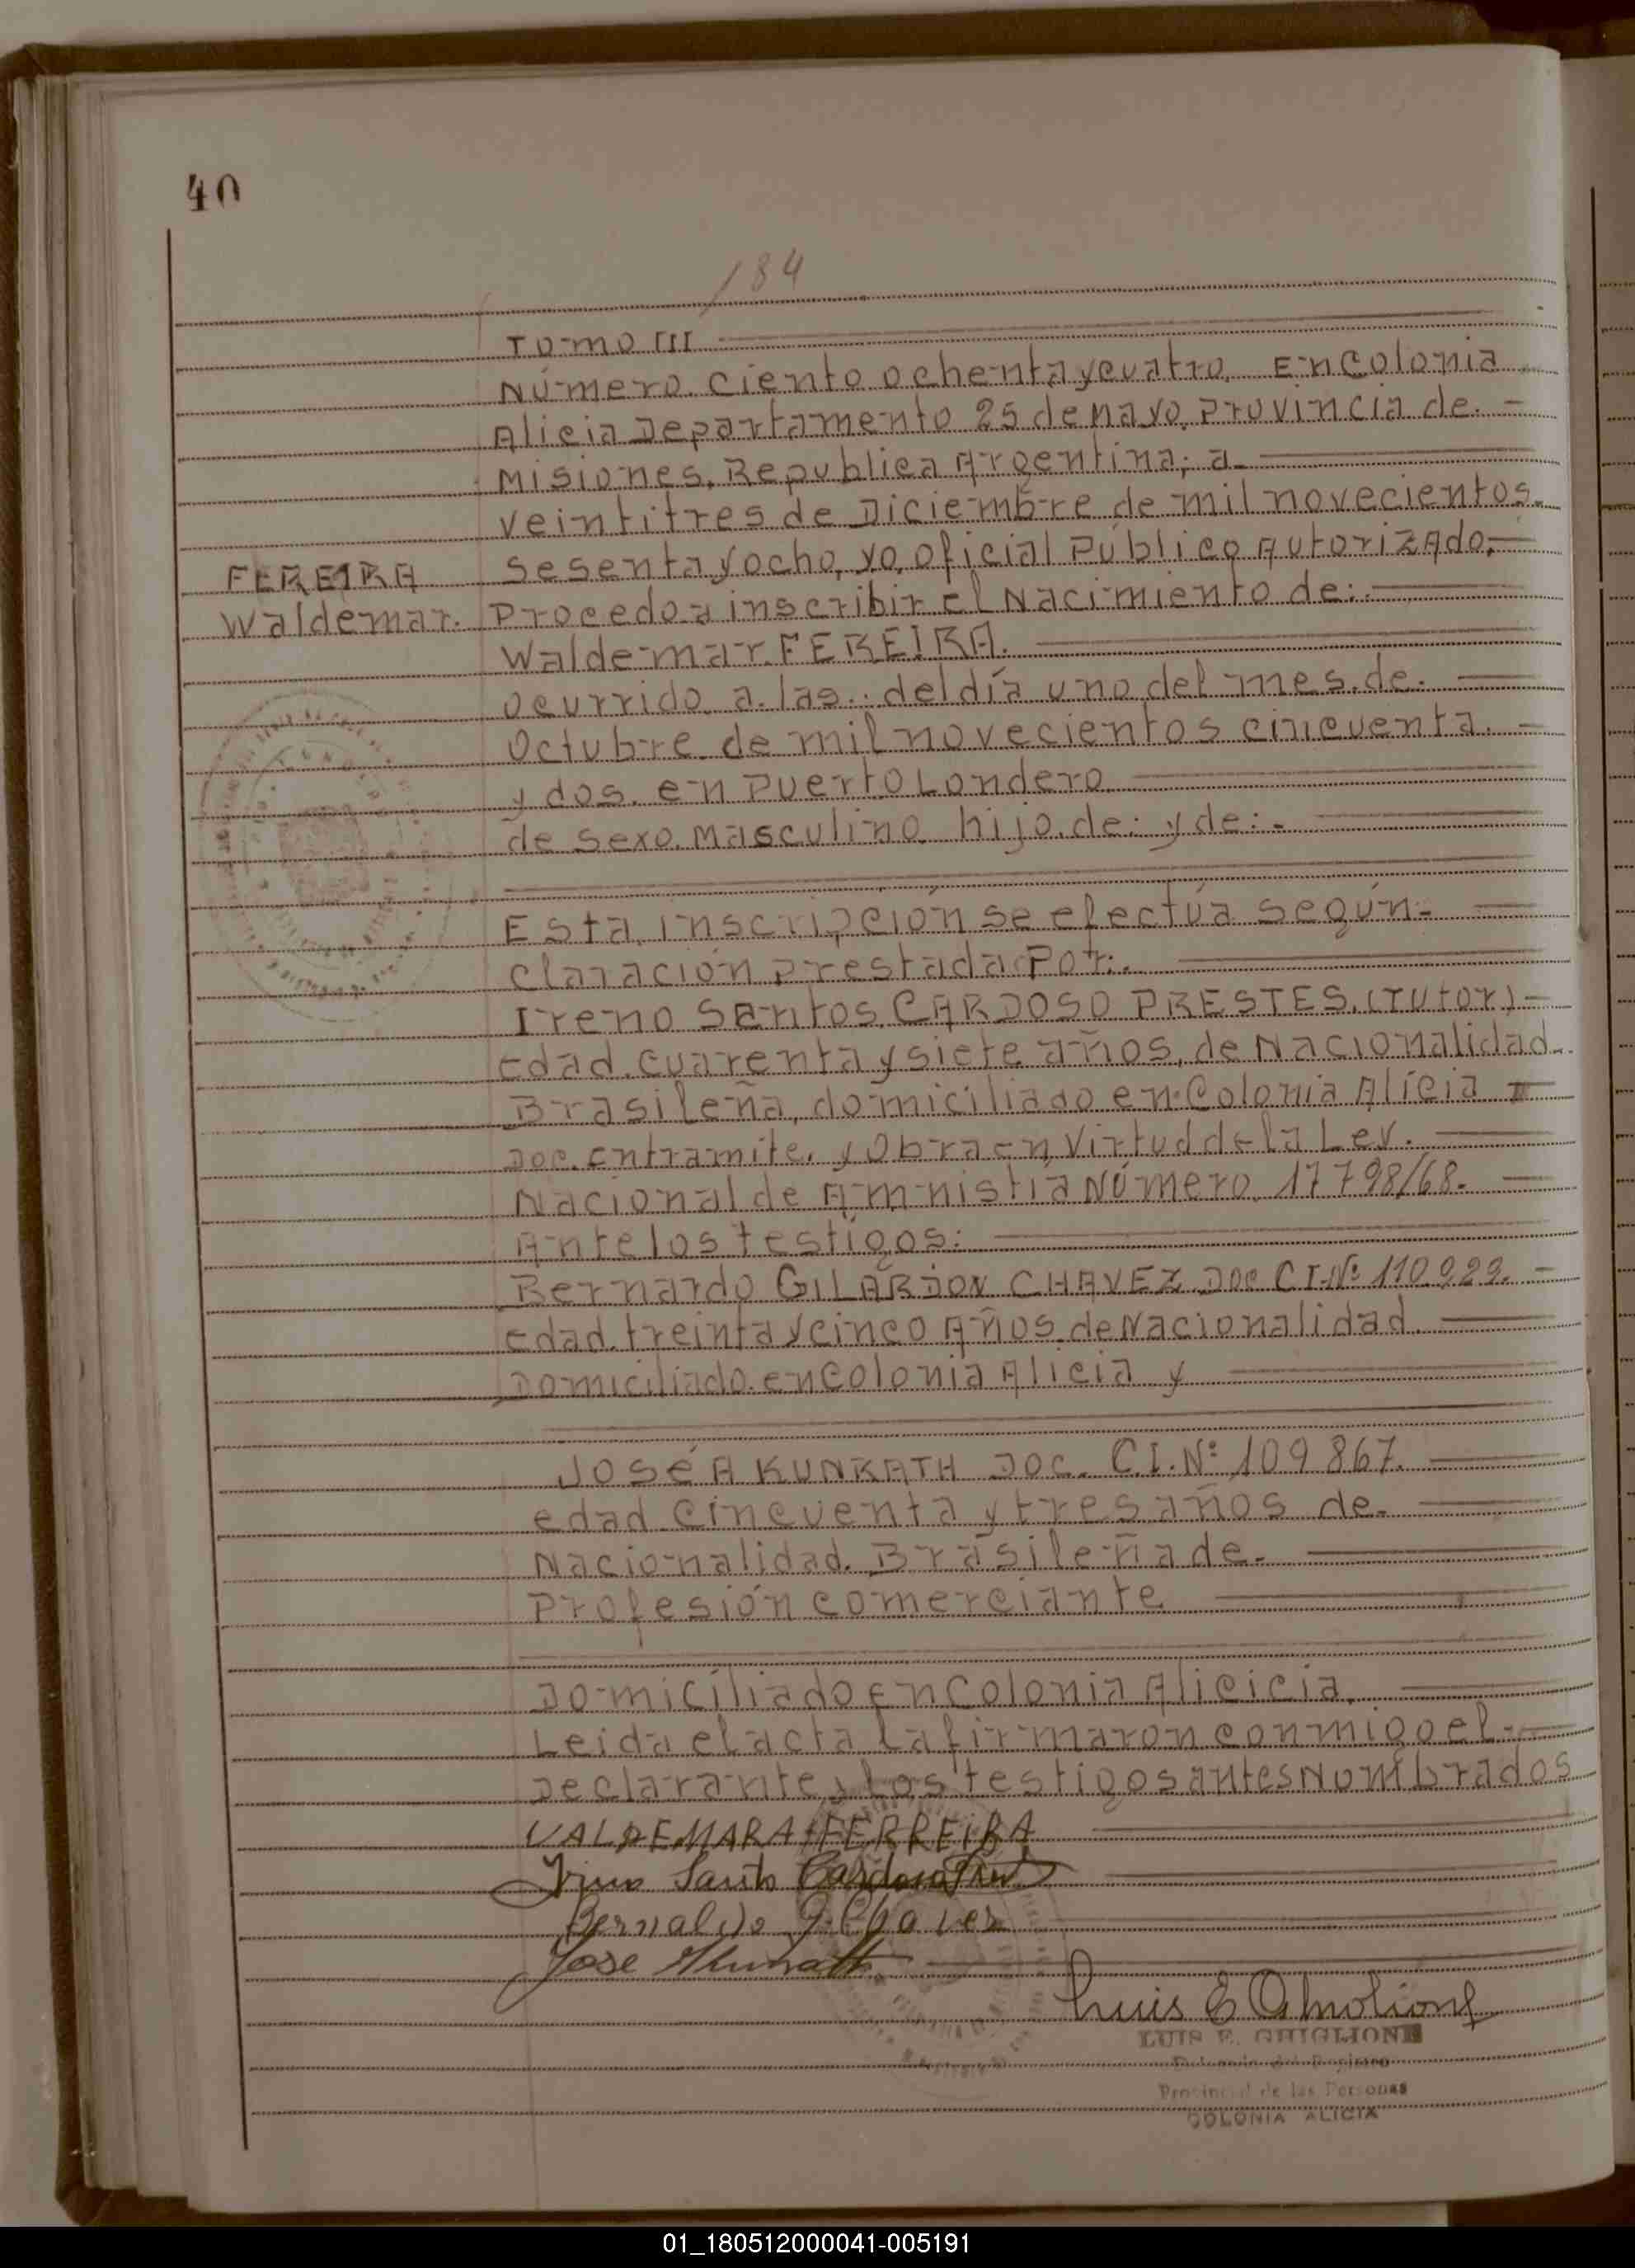 40
184
Tomo III
Número. Ciento ochenta y cuatro. En Colonia
Alicia Departamento 25 de Mayo, Provincia de.
Misiones, Republica Argentina; a.
veintitres de Diciembre de mil novecientos.
FEREIRA
sesenta y ocho, yo, oficial Público Autorizado,
Waldemar.
Procedo a inscribir el Nacimiento de:
Waldemar FEREIRA.
ocurrido a las: del día uno del mes de.
Octubre de mil novecientos cincuenta.
y dos. en Puerto Londero
de sexo. Masculino. hijo de: y de:
Esta inscripción se efectúa según
claración prestada Por:
Ireno Santos CARDOSO PRESTES. (Tutor)
edad. cuarenta y siete años, de Nacionalidad
Brasileña, domiciliado en Colonia Alicia
Doc. en tramite. y Obra en virtud de la Ley.
Nacional de Amnistia Número. 17798/68.
Ante los testigos:
Bernardo GILARDON CHAVEZ Doc C I. Nº 110.929.
edad. treinta y cinco Años. de Nacionalidad.
Domiciliado. en Colonia Alicia y
JOSÉ A KUNRATH DOC. C.I. Nº 109867.
edad cincuenta y tres años de
Nacionalidad. Brasileña de
Profesión comerciante
Domiciliado en Colonia Alicicia.
Leida el acta la firmaron conmigo el
Declarante y los testigos antes Nombrados
VALDEMAR A FERREIRA
Irino Santo Cardoso
Bernaldo g. Chaves
Jose Kunrath
LUIS E. GHIGLIONE
Provincial de las Personas
COLONIA ALICIA
01_180512000041-005191